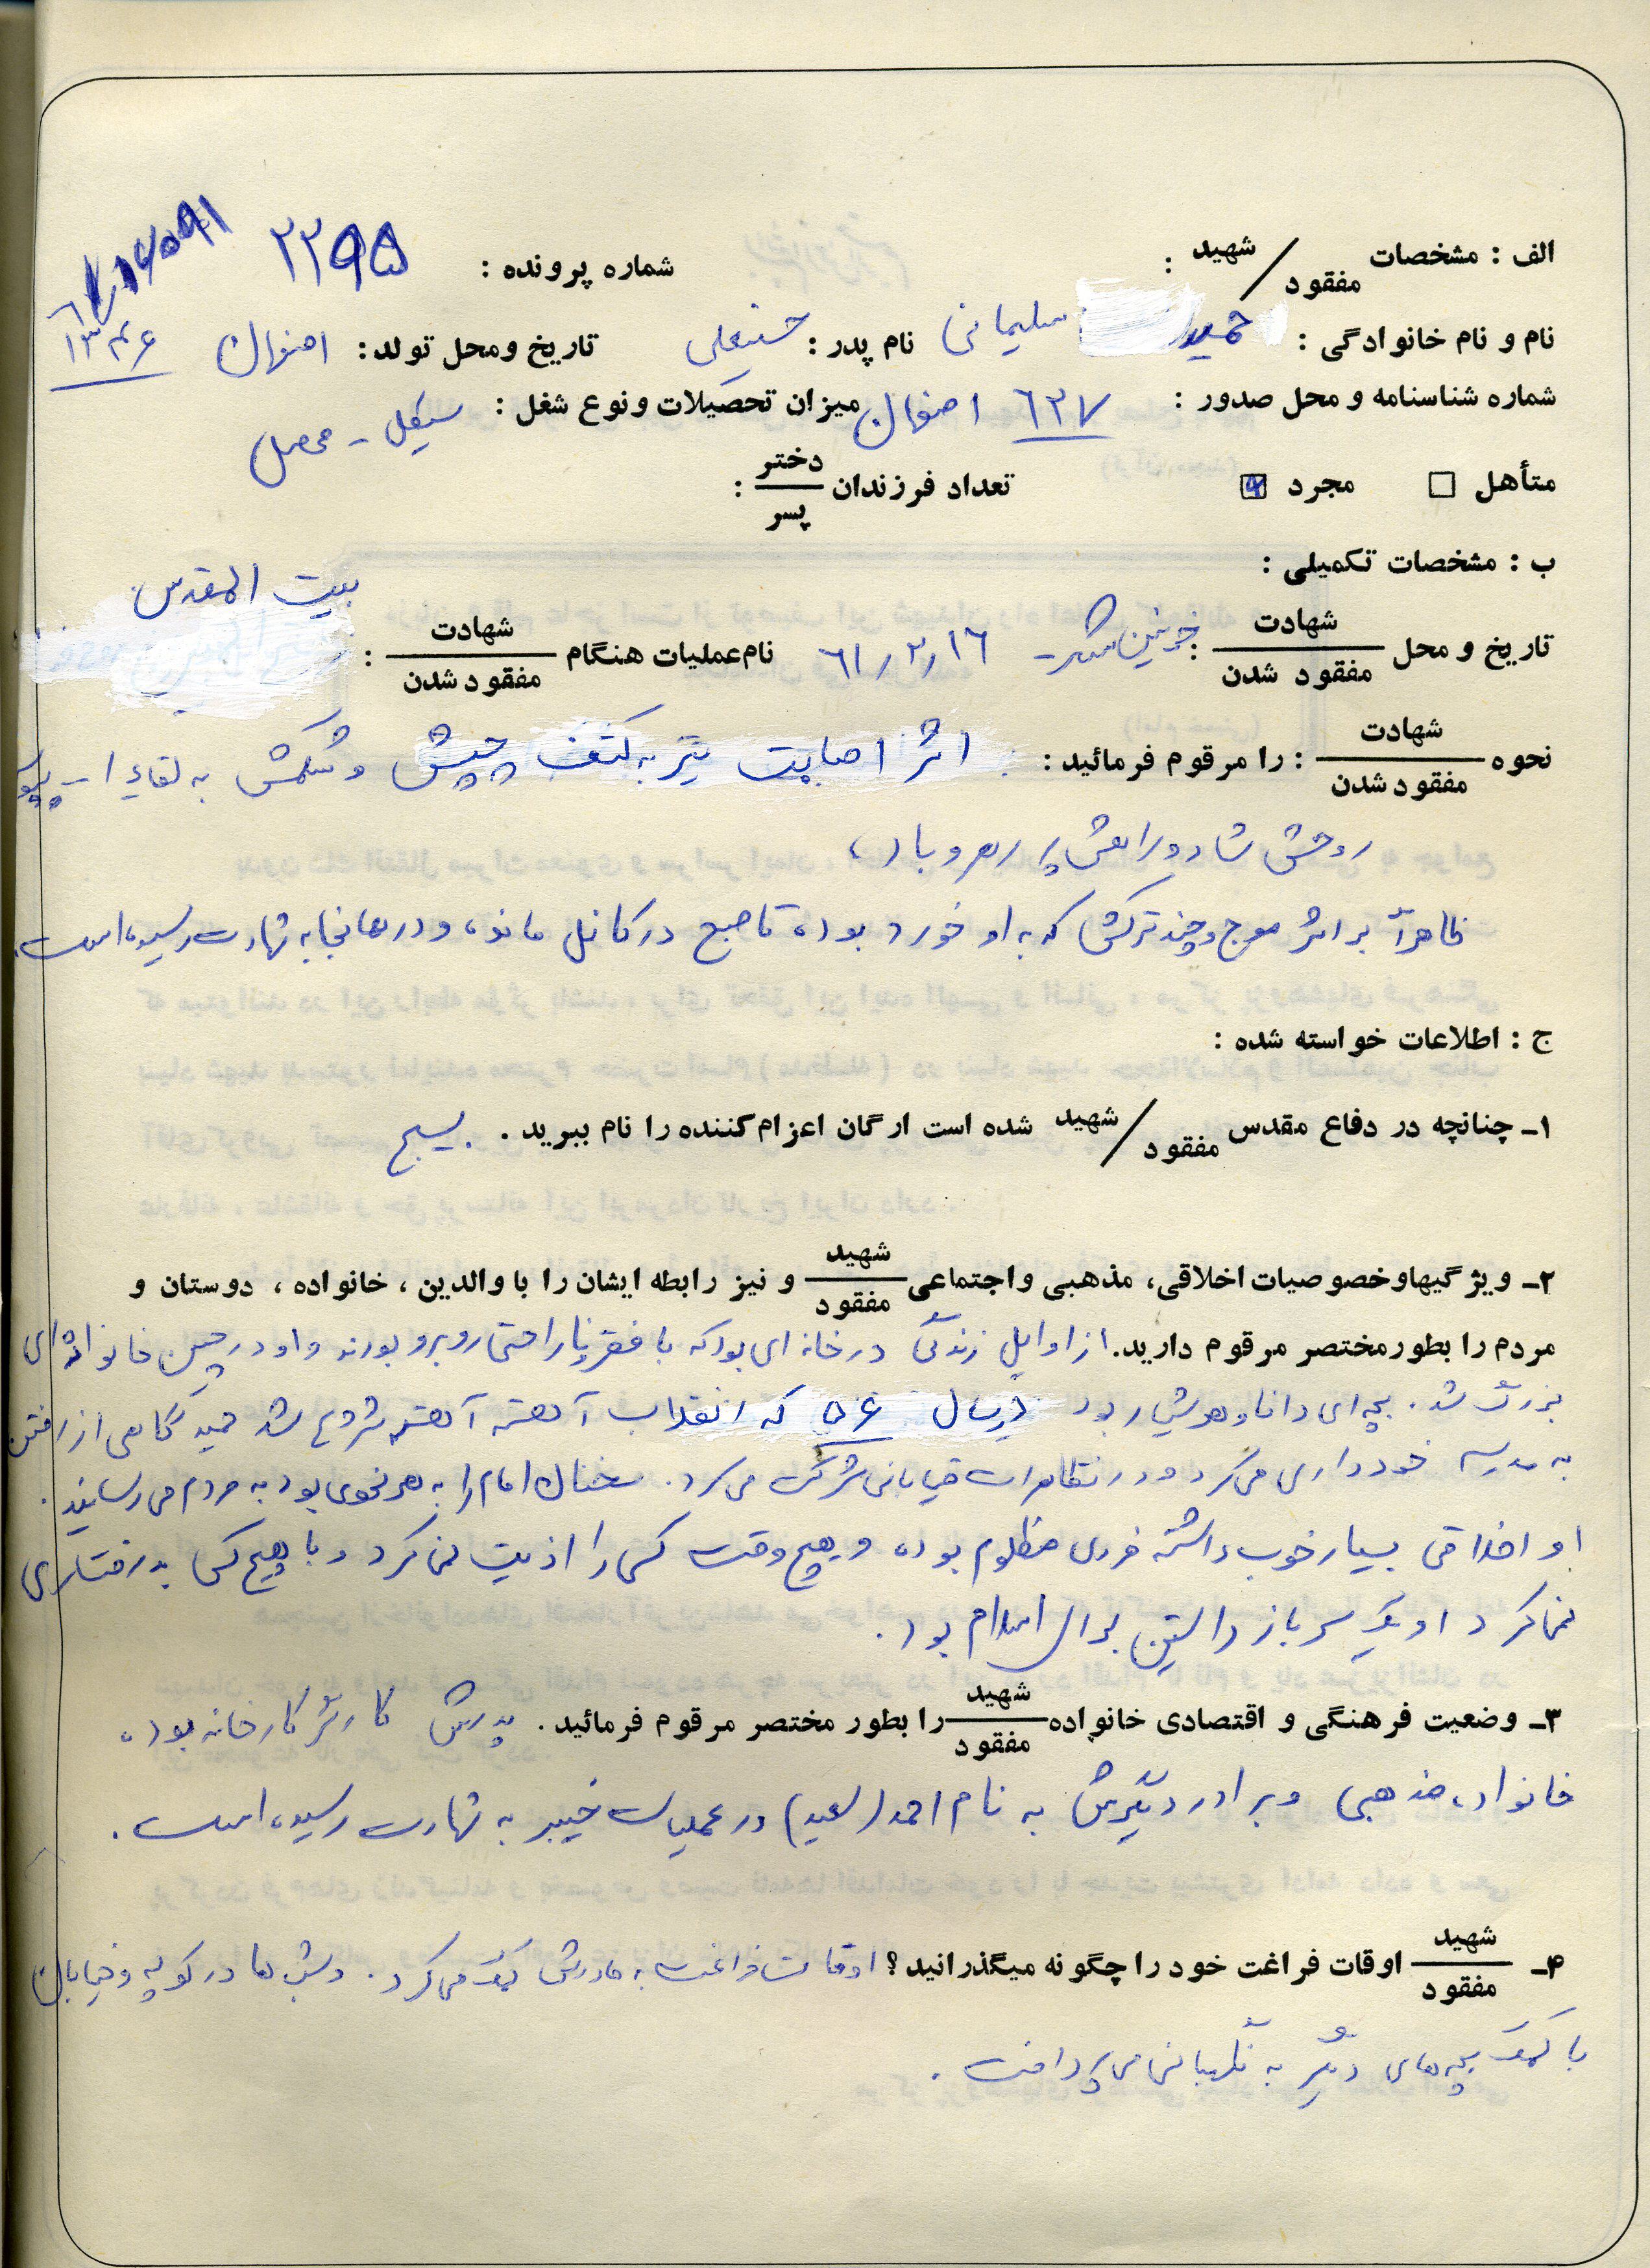 الف : مشخصات شهید / مفقود : شماره پرونده : ۲۲۹۵
نام و نام خانوادگی : حمید سلیمانی نام پدر : حسنعلی تاریخ ومحل تولد : اصفهان ۱۳۴۶
شماره شناسنامه و محل صدور : ۶۳۷ اصفهان میزان تحصیلات و نوع شغل : سیکل - محصل
متأهل □ مجرد ☑ تعداد فرزندان دختر / پسر :
ب : مشخصات تکمیلی :
تاریخ و محل شهادت / مفقود شدن : خونین شهر - ۶۱/۲/۱۶ نام عملیات هنگام شهادت / مفقود شدن : بیت المقدس
نحوه شهادت / مفقود شدن : را مرقوم فرمائید : اثر اصابت تیر به کتف چپش و شکمش به لقاء ا...
روحش شاد و راهش پر رهرو باد،
ظاهرآ بر اثر موج و چند ترکش که به او خورد بوده تا صبح در کانل مانده و در همانجا به شهادت رسیده است.
ج : اطلاعات خواسته شده :
۱ـ چنانچه در دفاع مقدس شهید / مفقود شده است ارگان اعزام کننده را نام ببرید . بسیج
۲ـ ویژگیها و خصوصیات اخلاقی، مذهبی و اجتماعی شهید / مفقود و نیز رابطه ایشان را با والدین ، خانواده ، دوستان و
مردم را بطور مختصر مرقوم دارید. از اوایل زندگی در خانه ای بود که با فقر و ناراحتی روبرو بودند و او در چنین خانواده ای
بزرگ شد . بچه ای دانا و هوشیار بود در سال ۵۶ که انقلاب آهسته آهسته شروع شد حمید گاهی از رفتن
به مدرسه خودداری می کرد و در تظاهرات خیابانی شرکت می کرد. سخنان امام را به هر نحوی بود به مردم می رسانید .
او اخلاقی بسیار خوب داشته فردی مظلوم بوده و هیچ وقت کسی را اذیت نمی کرد و با هیچ کس بد رفتاری
نمی کرد او یک سرباز راستین برای اسلام بود .
۳ـ وضعیت فرهنگی و اقتصادی خانواده شهید / مفقود را بطور مختصر مرقوم فرمائید . پدرش کارگر کارخانه بوده
خانواده مذهبی و برادر دیگرش به نام احمد (سعید) در عملیات خیبر به شهادت رسیده است .
۴ـ شهید / مفقود اوقات فراغت خود را چگونه میگذرانید ؟ اوقات فراغت به مادرش کمک می کرد . و شب ها در کوچه و خیابان
با کمک بچه های دیگر به نگهبانی می پرداخت .